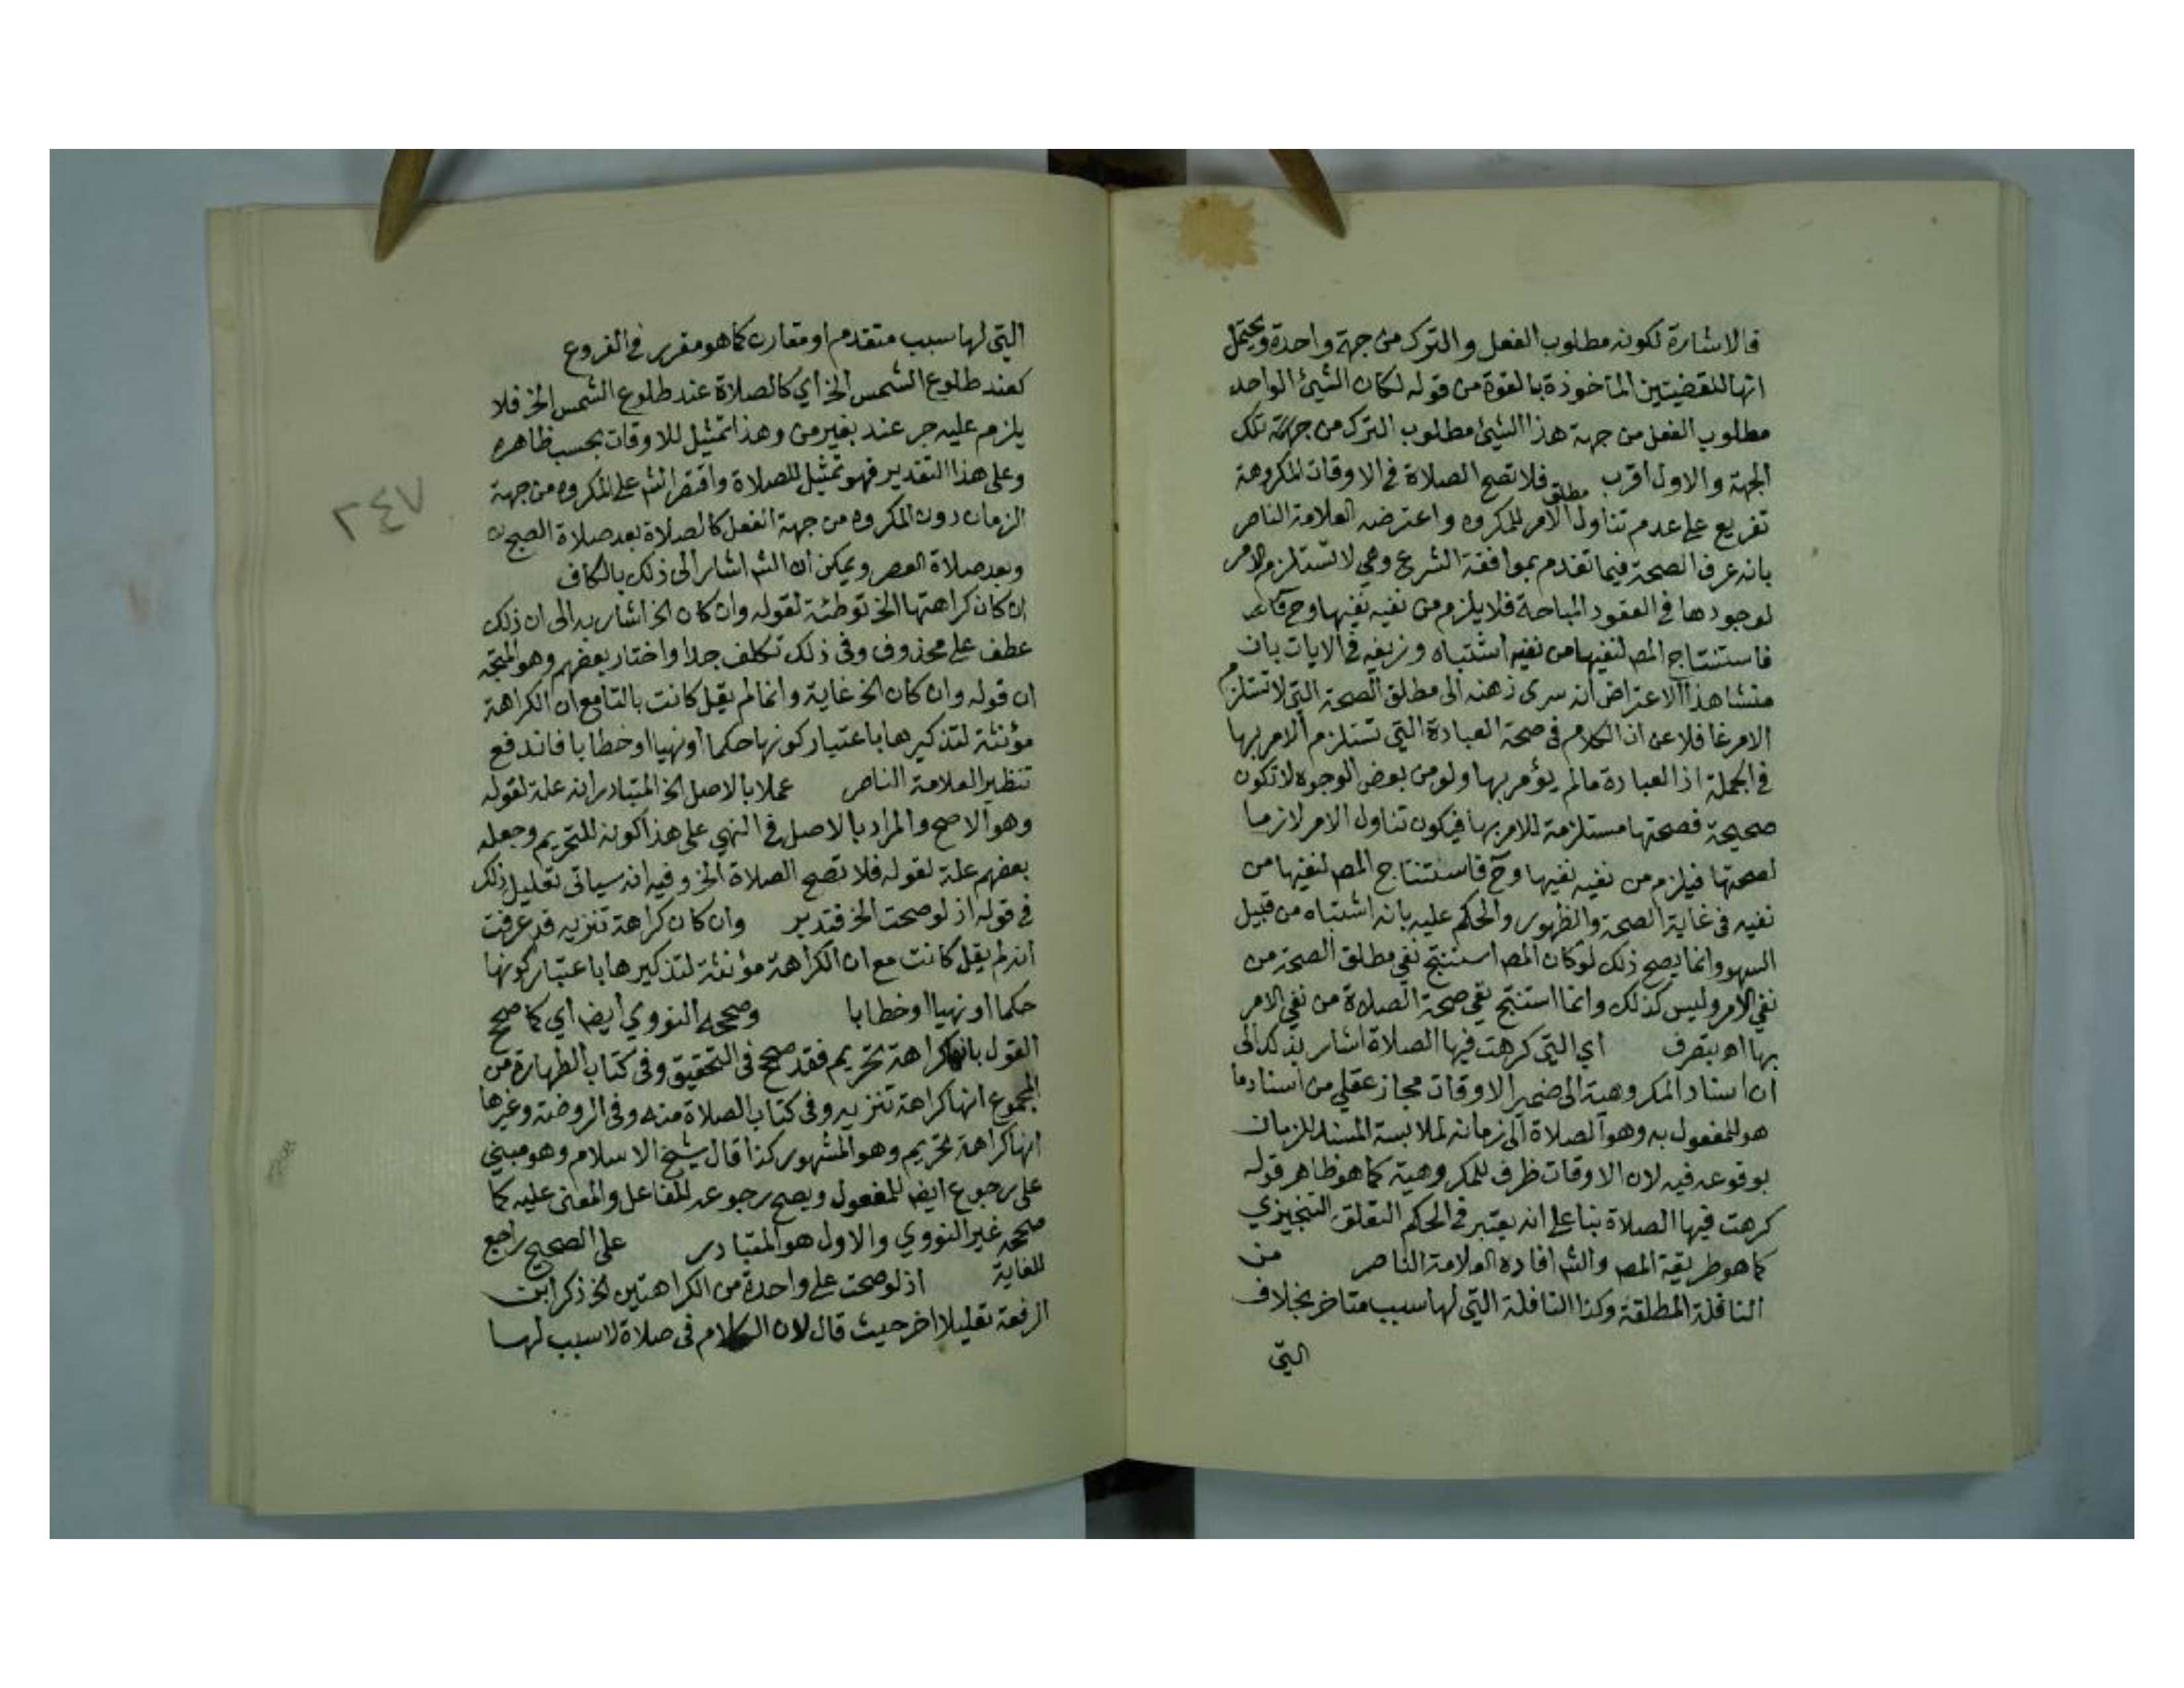 فالاشارة لكونه مطلوب الفعل والترك من جهة واحدة ويحتمل
انها للنقضيتين الماخوذة بالقوة من قوله لكان الشيئ الواحد
مطلوب الفعل من جهة هذا الشيئ مطلوب الترك من جهة تلك
الجهة والاول اقرب فلا تصح الصلاة في الاوقات المكروهة
تفريع على عدم تناول مطلق الامر للمكروه واعترضه العلامة الناصر
بانه عرف الصحة فيما تقدم بموافقة الشرع وهي لا تستلزم الامر
لوجودها في العقود المباحة فلا يلزم من نفيه نفيها وح
فاستنتاج المص لنفيها من نفيه اشتباه وزيفه في الايات بان
منشا هذا الاعتراض انه سرى ذهنه الى مطلق الصحة التي لا تستلزم
الامر غافلا عن ان الكلام في صحة العبادة التي تستلزم الامر بها
في الجملة اذ العبادة مالم يؤمر بها ولو من بعض الوجوه لا تكون
صحيحة فصحتها مستلزمة للامر بها فيكون تناول الامر لازما
لصحتها فيلزم من نفيه نفيها وح فاستنتاج المص لنفيها من
نفيه في غاية الصحة والظهور والحكم عليه بانه اشتباه من قبيل
السهو وانما يصح ذلك لو كان المص استنتج نفي مطلق الصحة من
نفي الامر وليس كذلك وانما استنتج نفي صحة الصلاة من نفي الامر
بها اه بتصرف اي التي كرهت فيها الصلاة اشار بذلك الى
ان اسناد المكروهية الى ضمير الاوقات مجاز عقلي من اسناد ما
هو للمفعول به وهو الصلاة الى زمانه لملابسة المسند للزمان
بوقوعه فيه لان الاوقات ظرف للمكروهية كما هو ظاهر قوله
كرهت فيها الصلاة بناء على انه يعتبر في الحكم التعلق التنجيزي
كما هو طريقة المص والش افاده العلامة الناصر من
النافلة المطلقة وكذا النافلة التي لها سبب متاخر بخلاف
التي
التي لها سبب متقدم او مقارن كما هو مقرر في الفروع
كعند طلوع الشمس الخ اي كالصلاة عند طلوع الشمس الخ فلا
يلزم عليه جر عند بغير من وهذا تمثيل للاوقات بحسب ظاهره
وعلى هذا التقدير فهو تمثيل للصلاة واقتصر الش على المكروه من جهة
الزمان دون المكروه من جهة الفعل كالصلاة بعد صلاة الصبح
وبعد صلاة العصر ويمكن ان الش اشار الى ذلك بالكاف
ان كان كراهتها الخ توطئة لقوله وان كان الخ اشار به الى ان ذلك
عطف على محذوف وفي ذلك تكلف جدا واختار بعضهم وهو المتجه
ان قوله وان كان الخ غاية وانما لم يقل كانت بالتا مع ان الكراهة
مؤنثة لتذكيرها باعتبار كونها حكما او نهيا او خطابا فاندفع
تنظير العلامة الناصر عملا بالاصل الخ المتبادر انه علة لقوله
وهو الاصح والمراد بالاصل في النهي على هذا كونه للتحريم وجعله
بعضهم علة لقوله فلا تصح الصلاة الخ وفيه انه سياتي تعليل ذلك
في قوله اذ لو صحت الخ فتدبر وان كان كراهة تنزيه قد عرفت
انه لم يقل كانت مع ان الكراهة مؤنثة لتذكيرها باعتبار كونها
حكما او نهيا او خطابا وصححه النووي ايض اي كما صحح
القول بانها كراهة تحريم فقد صحح في التحقيق وفي كتاب الطهارة من
المجموع انها كراهة تنزيه وفي كتاب الصلاة منه وفي الروضة وغيرها
انها كراهة تحريم وهو المشهور كذا قال شيخ الاسلام وهو مبني
على رجوع ايض للمفعول ويصح رجوعه للفاعل والمعنى عليه كما
صححه غير النووي والاول هو المتبادر على الصحيح راجع
للغاية اذ لو صحت على واحدة من الكراهتين الخ ذكر ابن
الرفعة تعليلا اخر حيث قال لان الكلام في صلاة لا سبب لها
٢٤٧